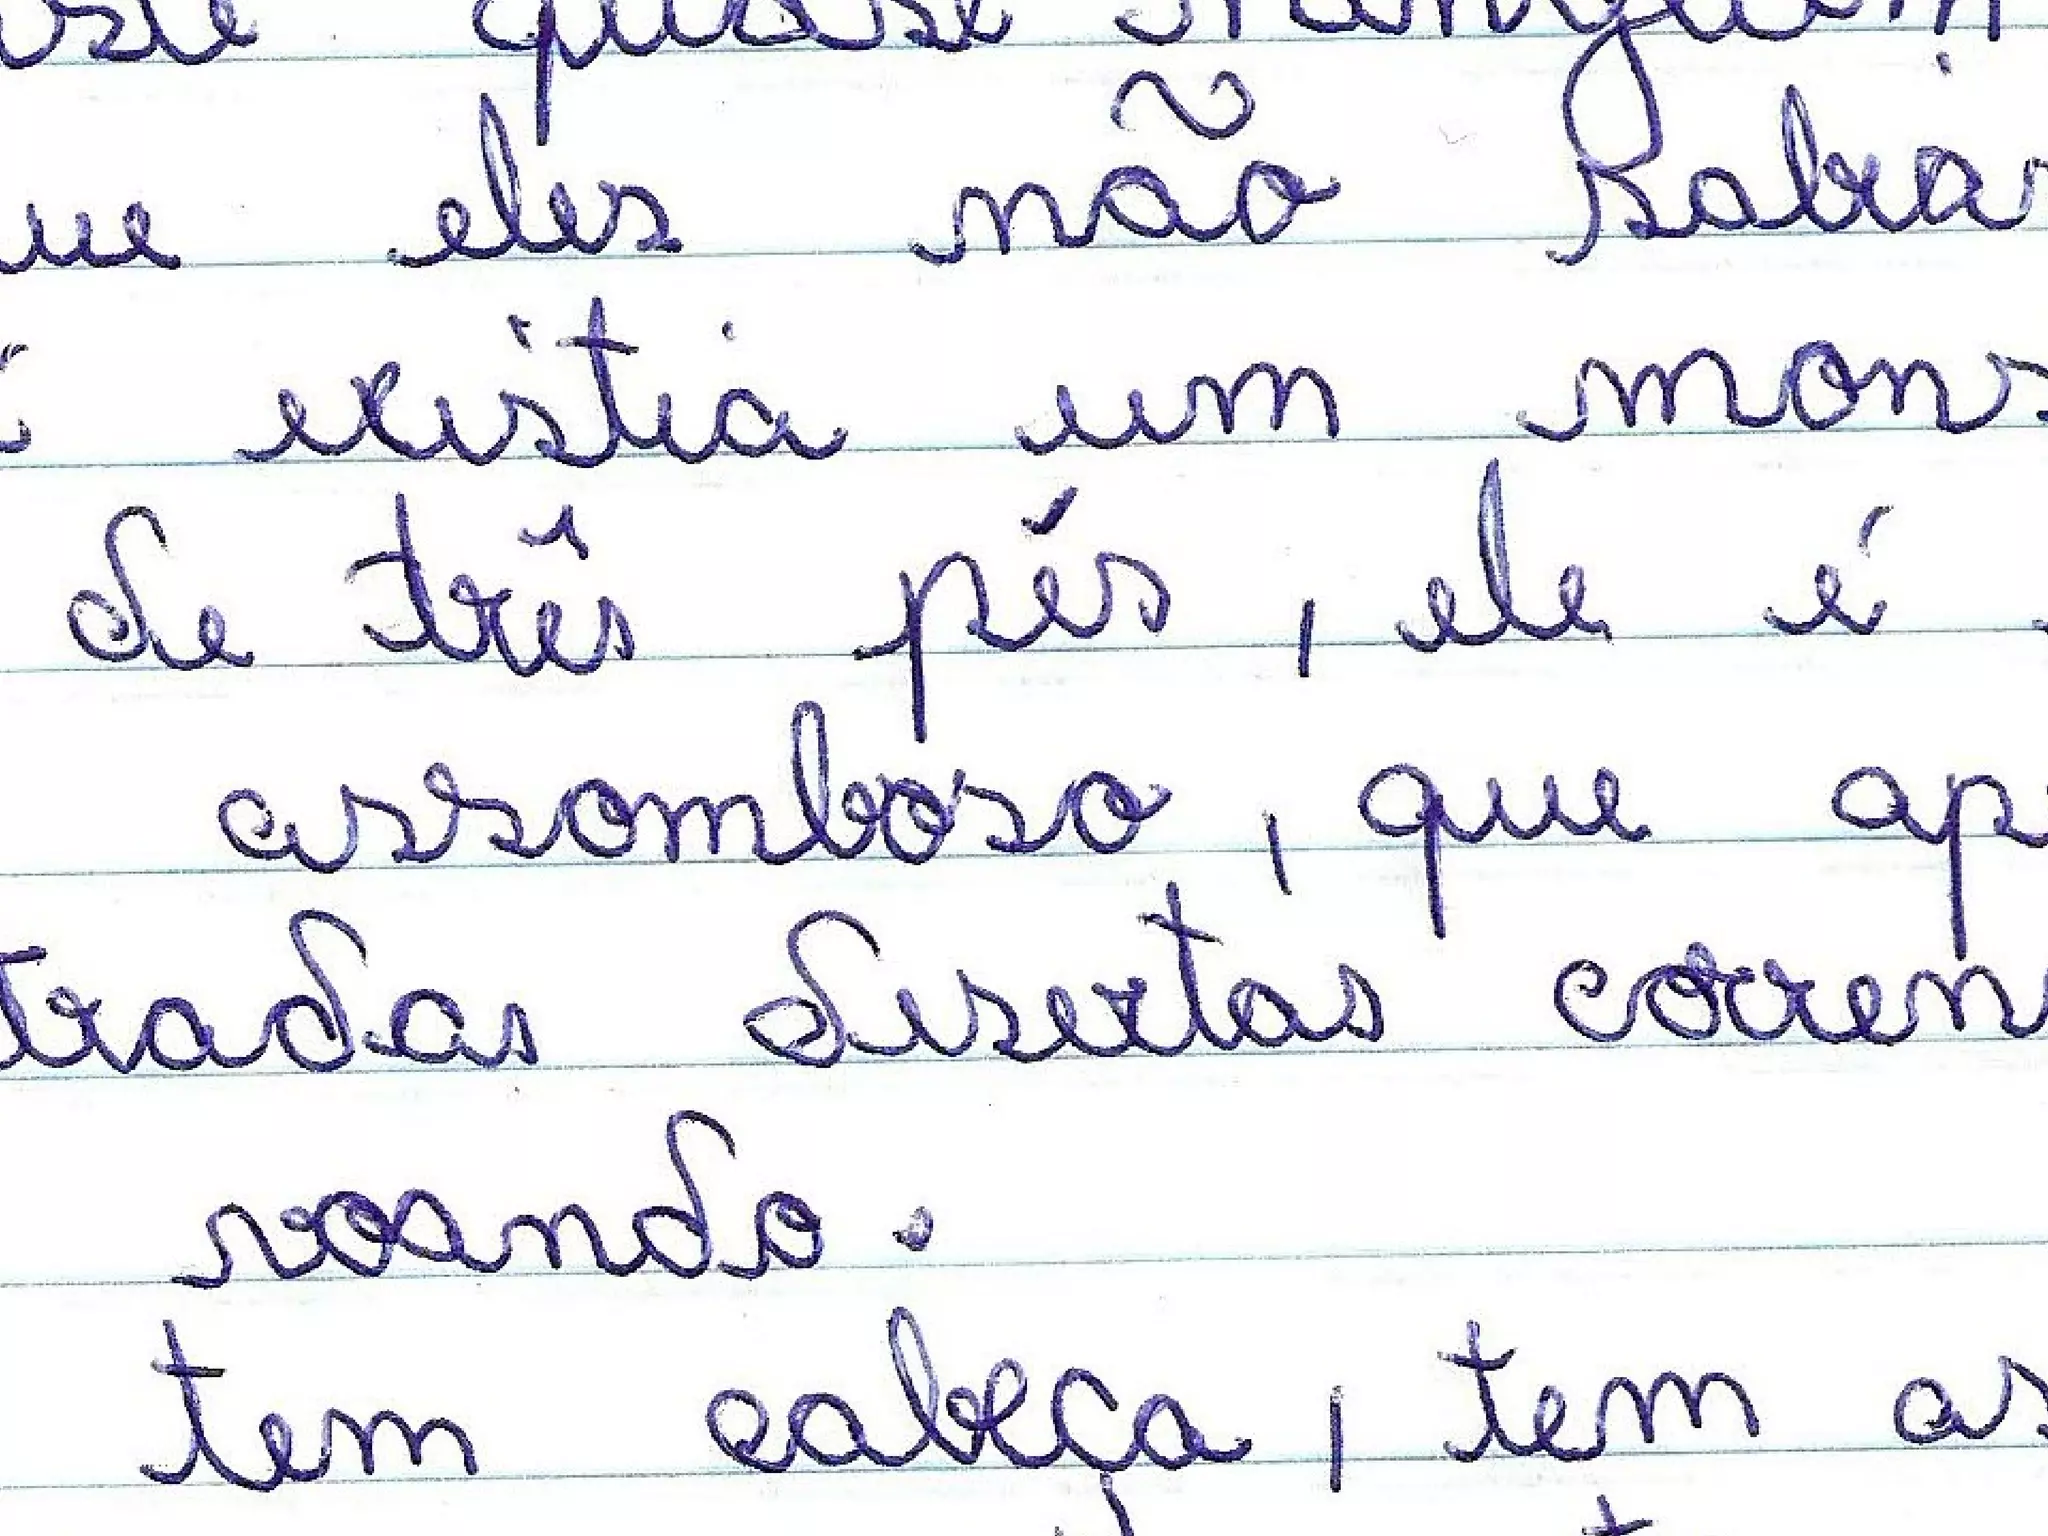 quase ninguém
ue eles não sabia
existia um mons
de três pés, ele é
assomboso, que ap
tradas desertas corren
voando.
tem cabeça, tem as